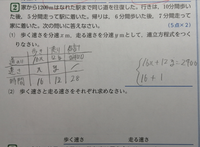 2 家から1200mはなれた駅まで同じ道を往復した。行きは、10分間歩いた後、5分間走って駅に着いた。帰りは、6分間歩いた後、7分間走って家に着いた。次の問いに答えなさい。
(5点×2)
(1) 歩く速さを分速xm、走る速さを分速ymとして、連立方程式をつくりなさい。
歩き 走り
速さ x y
時間 16 12 28
16x+12y=2400
16+1
(2) 歩く速さと走る速さをそれぞれ求めなさい。
歩く速さ 走る速さ